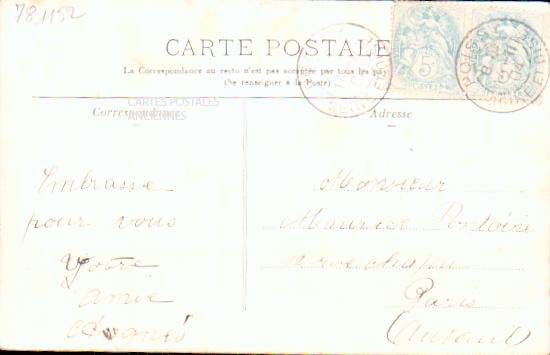 781152
CARTE POSTALE
La Correspondance au recto n'est pas acceptée par tous les pays
(Se renseigner à la Poste)
CARTES POSTALES
ANCIENNES
Correspondance
Adresse
Embrasse
pour vous
Votre
amie
Monsieur
Maurice
rue
Paris
(Auteuil)
5
POSTES